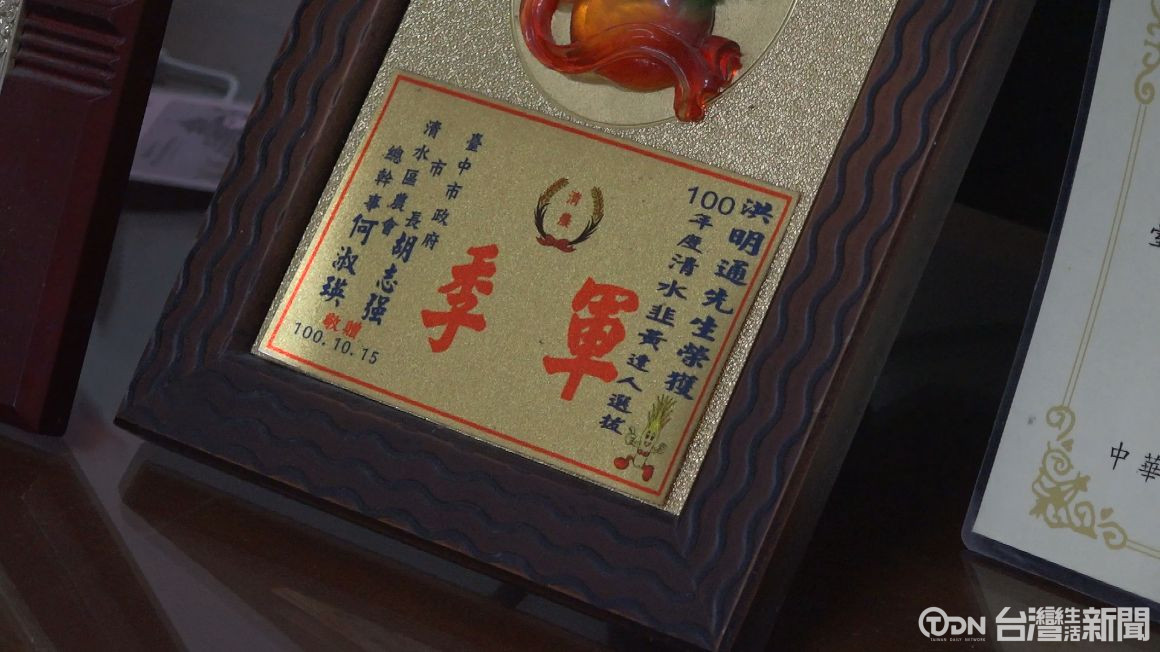 洪明通先生榮獲
100年度清水韭黃達人選拔
季軍
清農
臺中市政府
清水市長胡志强
清水區農會
總幹事何淑瑛
敬贈
100.10.15
中華
TDN
TAIWAN DAILY NETWORK
台灣生活新聞